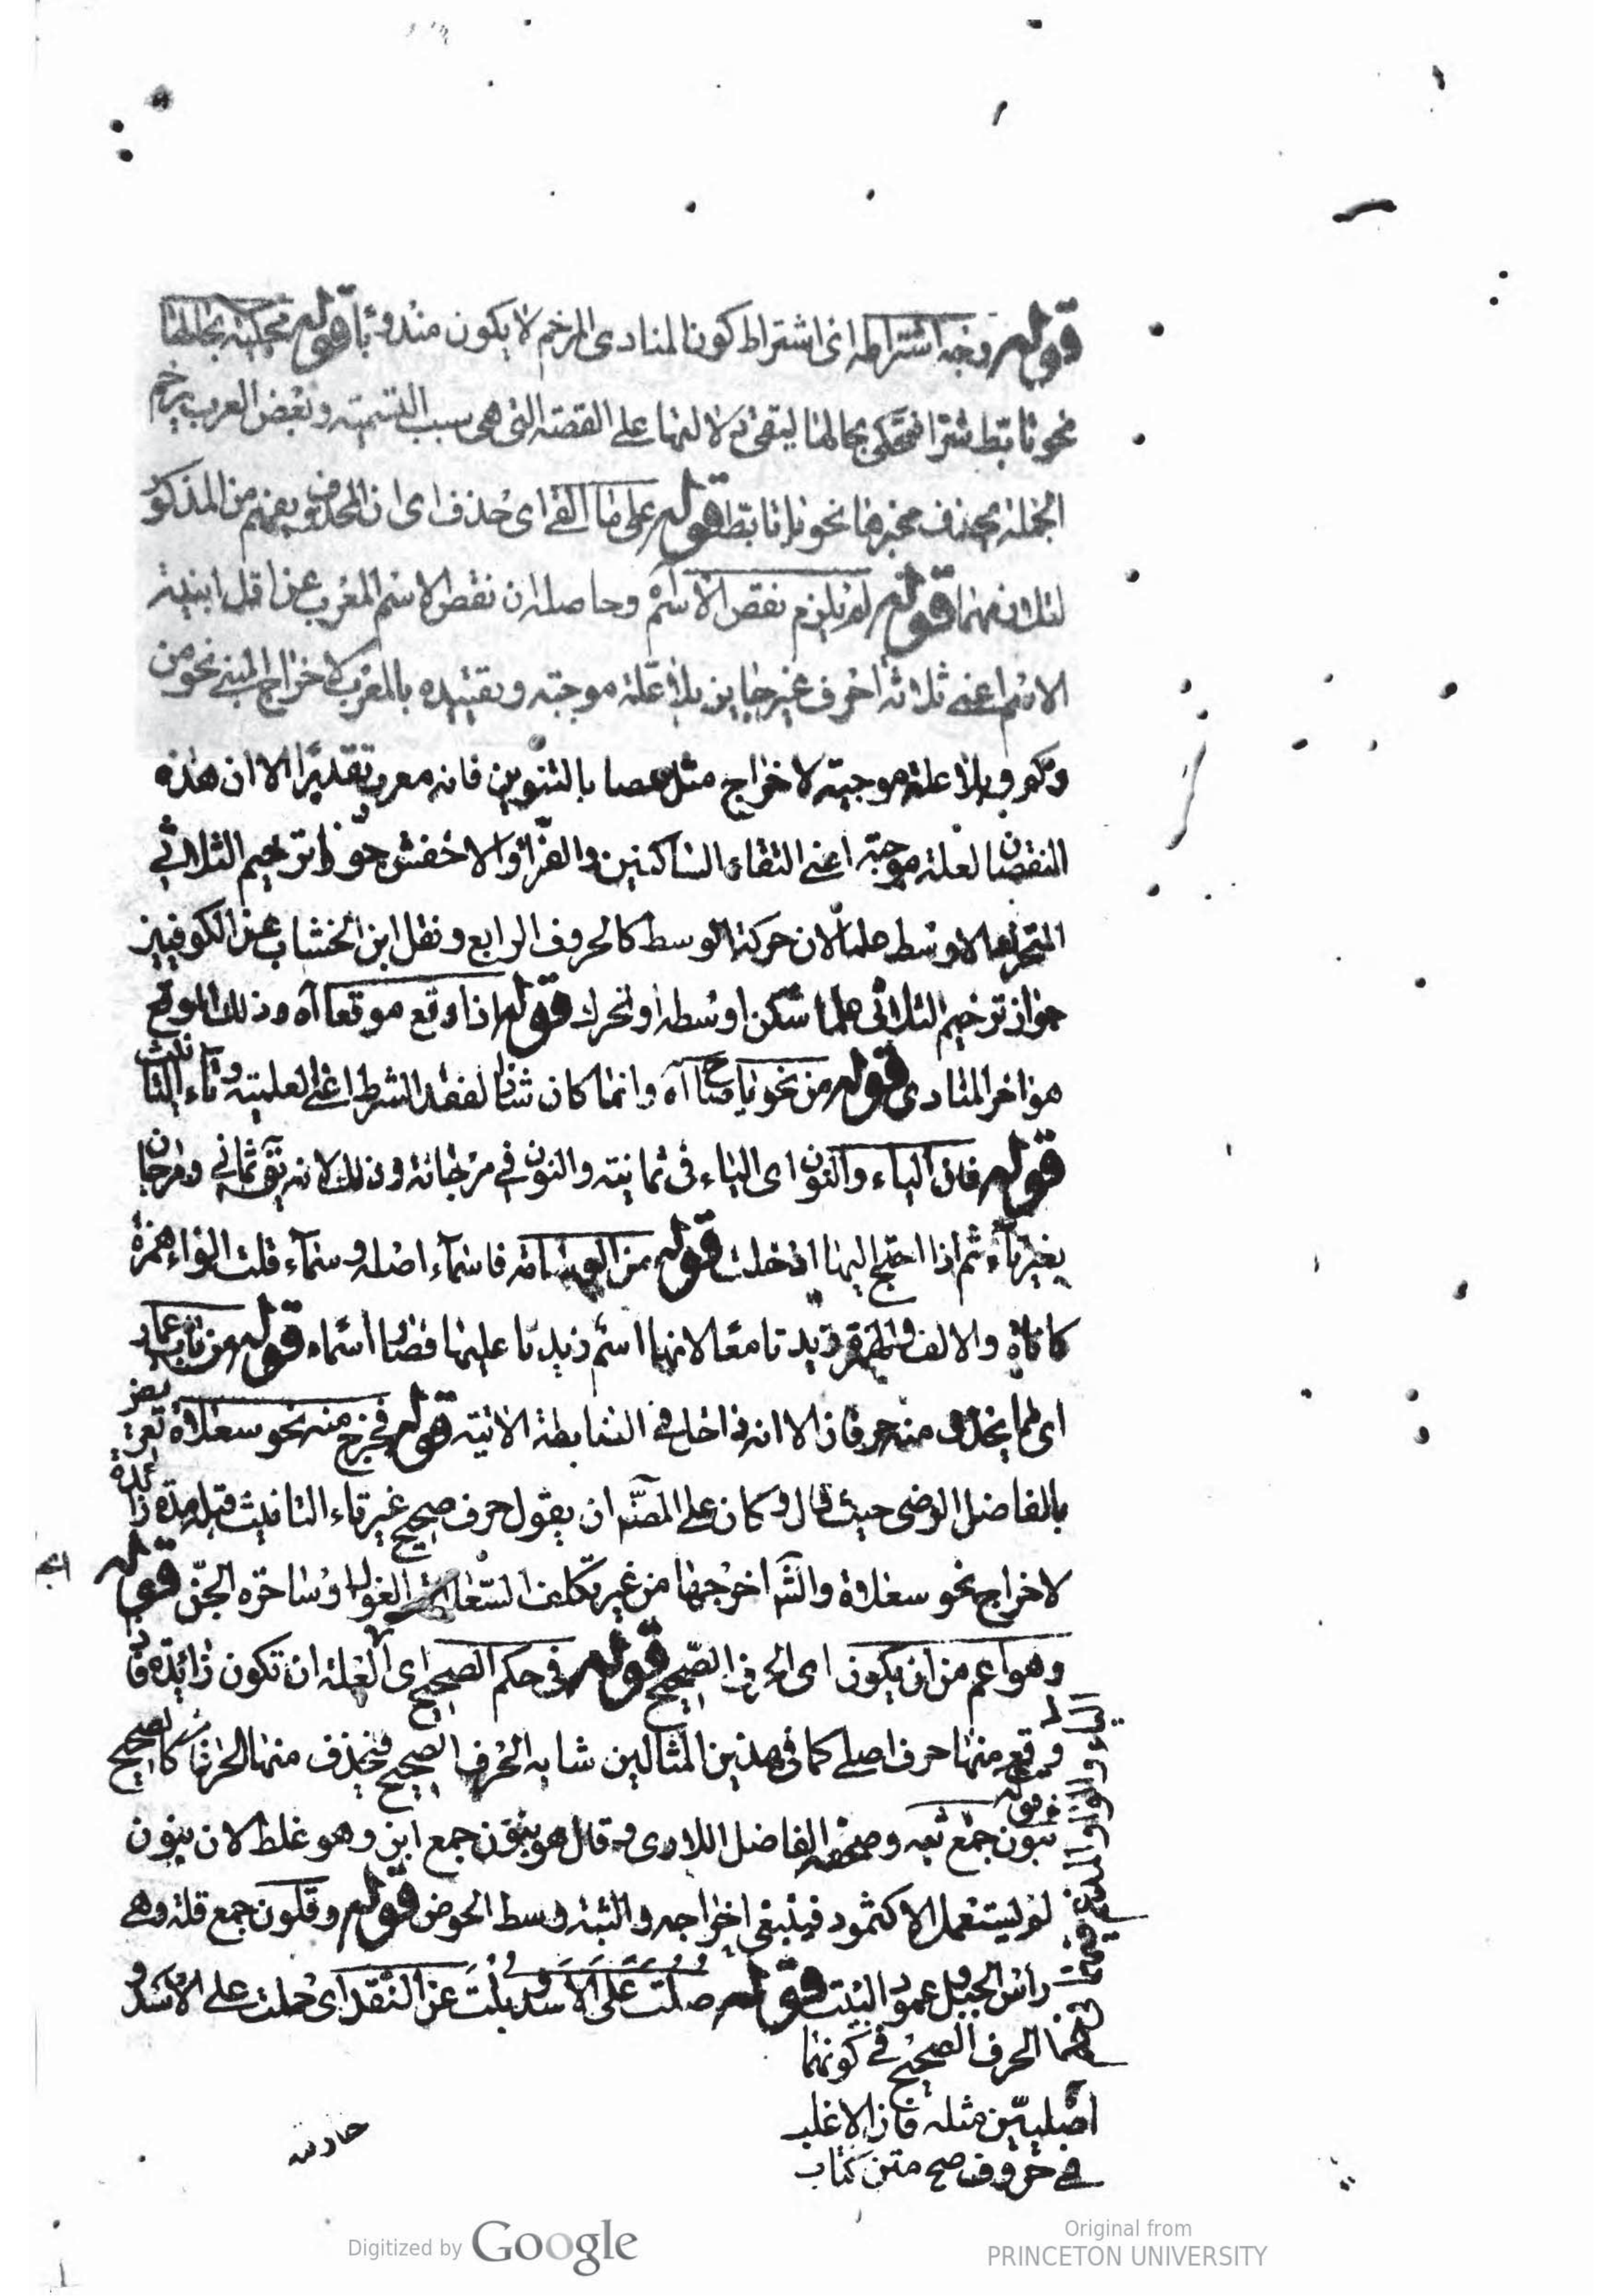 قوله وجه اشتراطه اى اشتراط كون المنادى المرخم لا يكون مندوبا قوله محكية بحالها
نحو تابط شرا فتحكى بحالها ليبقى دلالتها على القصة التى هى سبب التسمية وبعض العرب يرخم
الجملة بحذف عجزها نحو يا تابط قوله على ما القى اى حذف اى ان المحذوف يفهم من المذكور
قوله لم يلزم نقص الاسم آه وحاصله ان نقص الاسم المعرب عن اقل ابنية
الاسم اعنى ثلاثة احرف غير جايز بلا علة موجبة وتقييده بالمعرب لاخراج المبنى نحو من
وكم وبلا علة موجبة لاخراج مثل عصا بالتنوين فانه معرب تقديرا الا ان هذه
النقصان لعلة موجبة اعنى التقاء الساكنين والفراء والاخفش جوزا ترخيم الثلاثى
المتحرك الاوسط علما لان حركة الوسط كالحروف الرابع ونقل ابن الخشاب عن الكوفيين
جواز ترخيم الثلاثى علما سكن اوسطه او تحرك قوله اذا وقع موقعا آه وذلك الموقع
هو اخر المنادى قوله من نحو يا صاح آه وانما كان شاذا لفقد الشرط اعنى العلمية وتاء التانيث
قوله فان الياء والنون اى الياء فى ثمانية والنون فى مرجانة وذلك لانه ثمانى ومرجان
بغير تاء ثم اذا احتج اليها ادخلت قوله من الوسامة فاسماء اصله وسماء قلبت الواو همزة
كاناة والالف والهمزة زيدتا معا لانها اسم زيدتا عليها فصار اسماء قوله من باب عمار
اى مما يحذف منه حرفان الا انه داخل فى الضابطة الاتية قوله فخرج منه نحو سعلاة تعريض
بالفاضل الرضى حيث قال وكان على المصنف ان يقول حرف صحيح غير تاء التانيث قبله مدة زائدة
لاخراج نحو سعلاة والشارح اخرجها من غير تكلف السعلاة الغول او ساحرة الجن قوله
وهو اعم من ان يكون اى الحرف الصحيح قوله فى حكم الصحيح اى العلة ان تكون زائدة فاذا
وقع منها حرف اصلى كما فى هذين المثالين شابه الحرف الصحيح فيحذف منها الحرفان كالصحيح
قوله
ثبون جمع ثبة وصحفه الفاضل اللارى وقال هو بنون جمع ابن وهو غلط لان بنون
لم يستعمل الا كثمود فينبغى اخراجه والثبة وسط الحوض قوله وقلون جمع قلة وهى
راس الجبل وعمود البيت قوله صلت على الاسد وبلت عن النقد اى حملت على الاسد و
الحرف الصحيح فى كونهما
اصليين مثله فان الاغلب
فى حروف صح متن كتاب